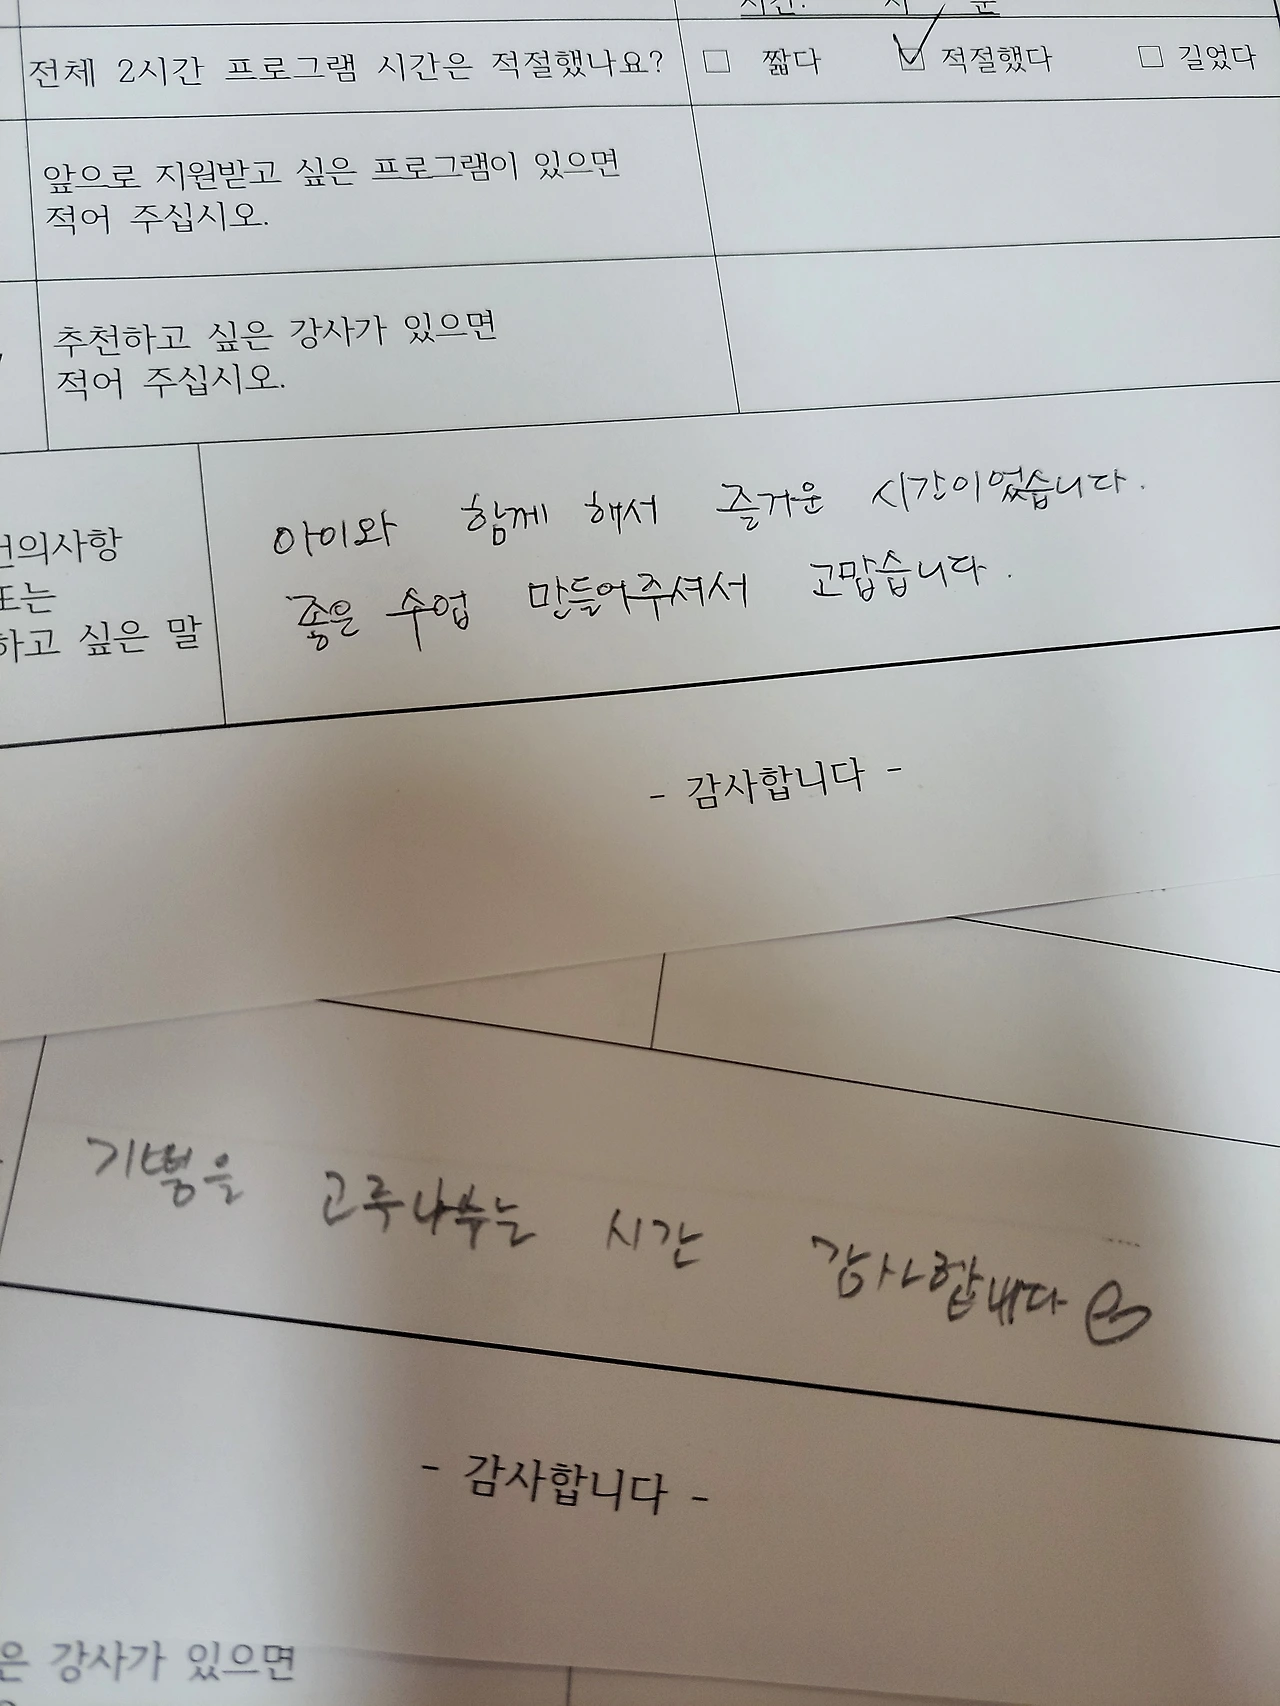 시간: 시 분
전체 2시간 프로그램 시간은 적절했나요? □ 짧다 ☑ 적절했다 □ 길었다
앞으로 지원받고 싶은 프로그램이 있으면
적어 주십시오.
추천하고 싶은 강사가 있으면
적어 주십시오.
건의사항
또는
하고 싶은 말
아이와 함께 해서 즐거운 시간이었습니다.
좋은 수업 만들어주셔서 고맙습니다.
- 감사합니다 -
기쁨을 고루나누는 시간 감사합니다
- 감사합니다 -
은 강사가 있으면